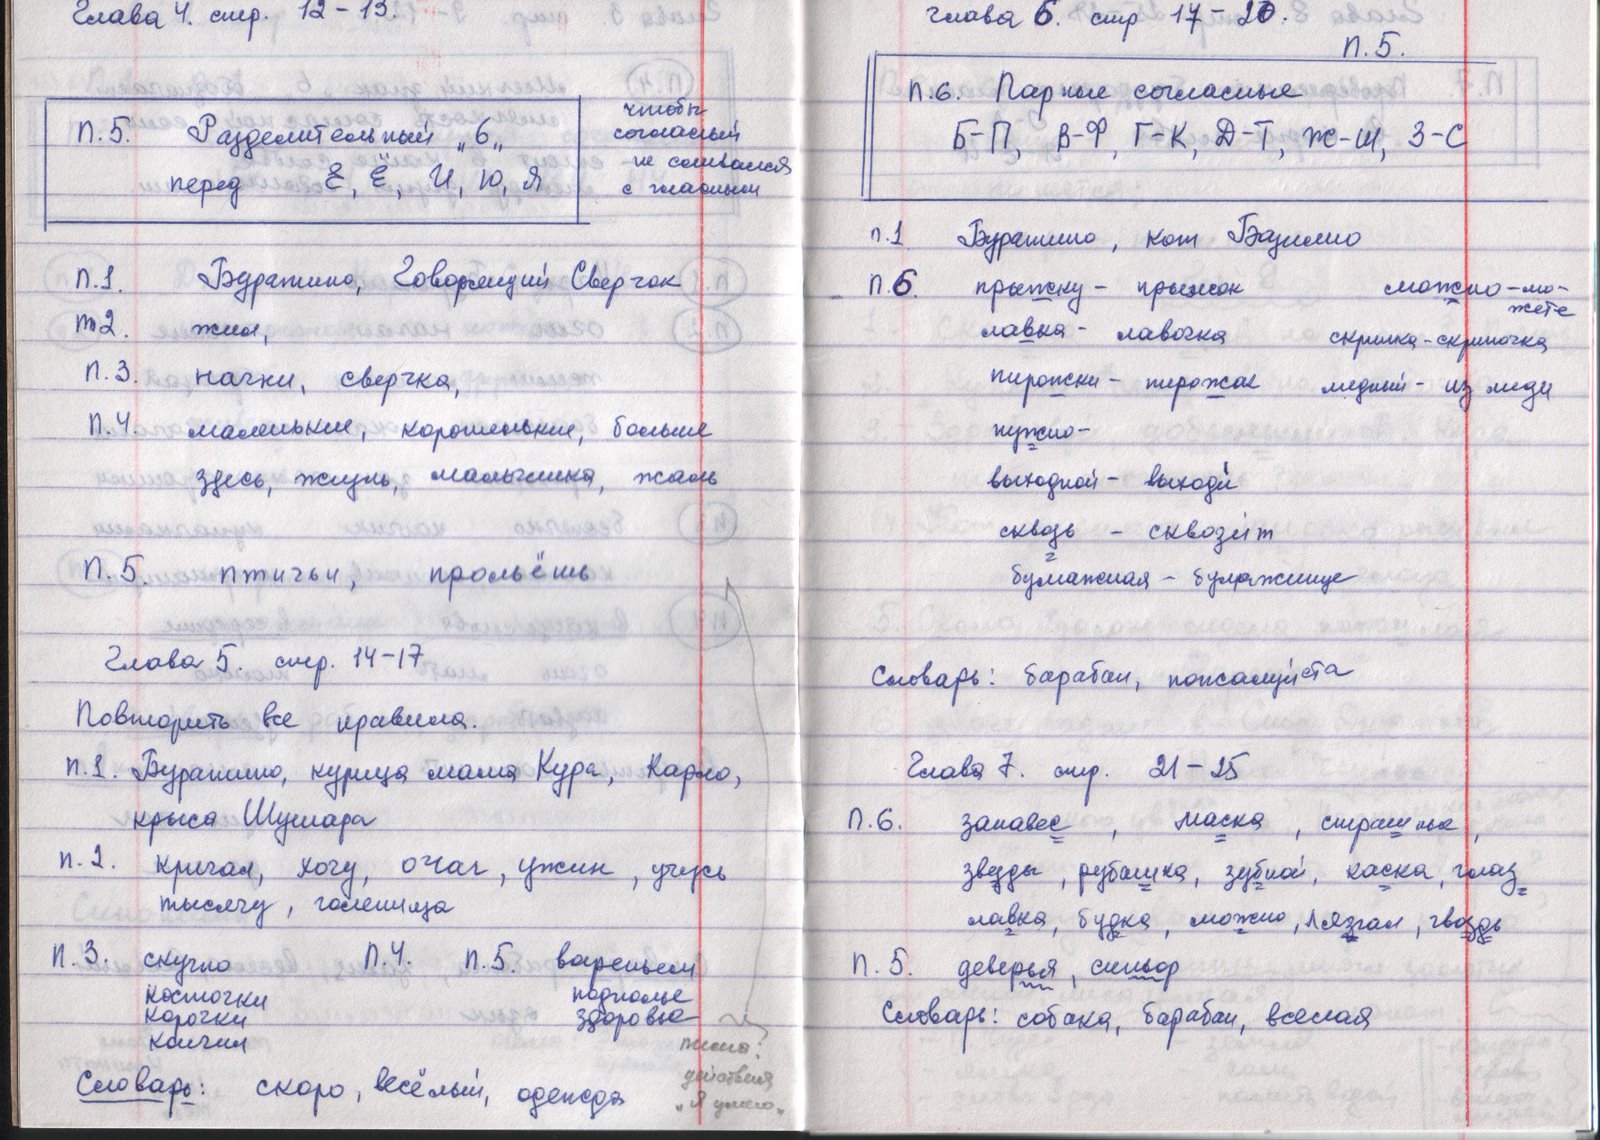 Глава 4. стр. 12-13.
п.5. Разделительный „Ь„
перед Е, Ё, И, Ю, Я
чтобы
согласный
не сливался
с гласным
п.1. Буратино, Говорящий Сверчок
п.2. жил,
п.3. начки, сверчка,
п.4. маленькие, хорошенькие, больше
здесь, жизнь, мальчишка, жаль
п.5. птичьи, прольёшь
Глава 5. стр. 14-17
Повторить все правила.
п.1. Буратино, курица мама Кура, Карло,
крыса Шушара
п.2. кричал, хочу, очаг, ужин, учусь
тысячу, голенища
п.3. скучно п.4. п.5. вареньем
косточки подполье
корочки здоровье
кончил
письмо:
действия
„Я умею„
Словарь: скоро, весёлый, одежда
глава 6. стр 17-20.
п.5.
п.6. Парные согласные
Б-П, В-Ф, Г-К, Д-Т, Ж-Ш, З-С
п.1 Буратино, кот Базилио
п.6. прыжку - прыжок можно - мо-
жете
лавка - лавочка скрипка - скрипочка
пирожки - пирожок медный - из меди
нужно -
выходной - выходи
сквозь - сквозит
бумажная - бумажище
Словарь: барабан, пожалуйста
Глава 7. стр. 21-25
п.6. занавес, маска, страшная,
звезды, рубашка, зубной, каска, глаз
лавка, будка, можно, лязгал, гвоздь
п.5. деверья, синьор
Словарь: собака, барабан, веселая